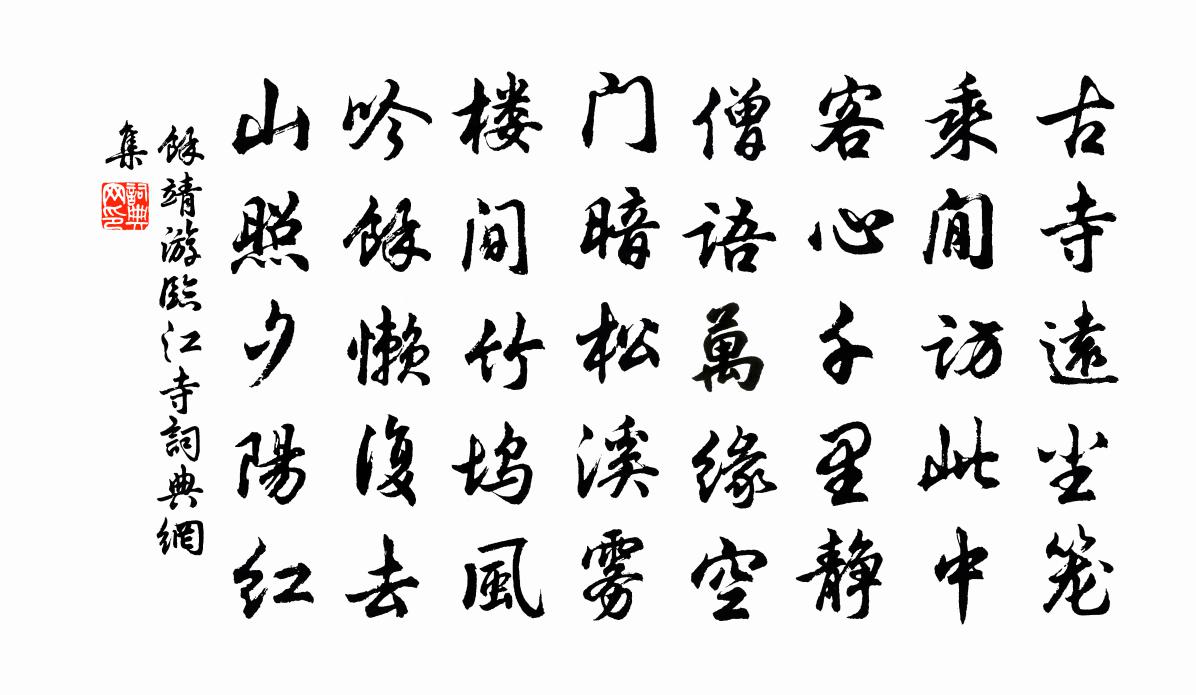 古寺遠尘笼
乘闲访此中
客心千里静
僧语萬缘空
门暗松溪雾
楼间竹坞風
吟馀懒復去
山照夕陽红
馀靖游臨江寺詞典網
集
詞典
网印